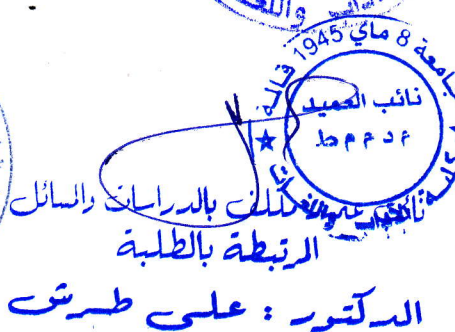 واللغ
جامعة 8 ماي 1945 قالمة
نائب العميد
م د م م ط
نائب العميد المكلف بالدراسات والمسائل
المرتبطة بالطلبة
الدكتور : علي طرش